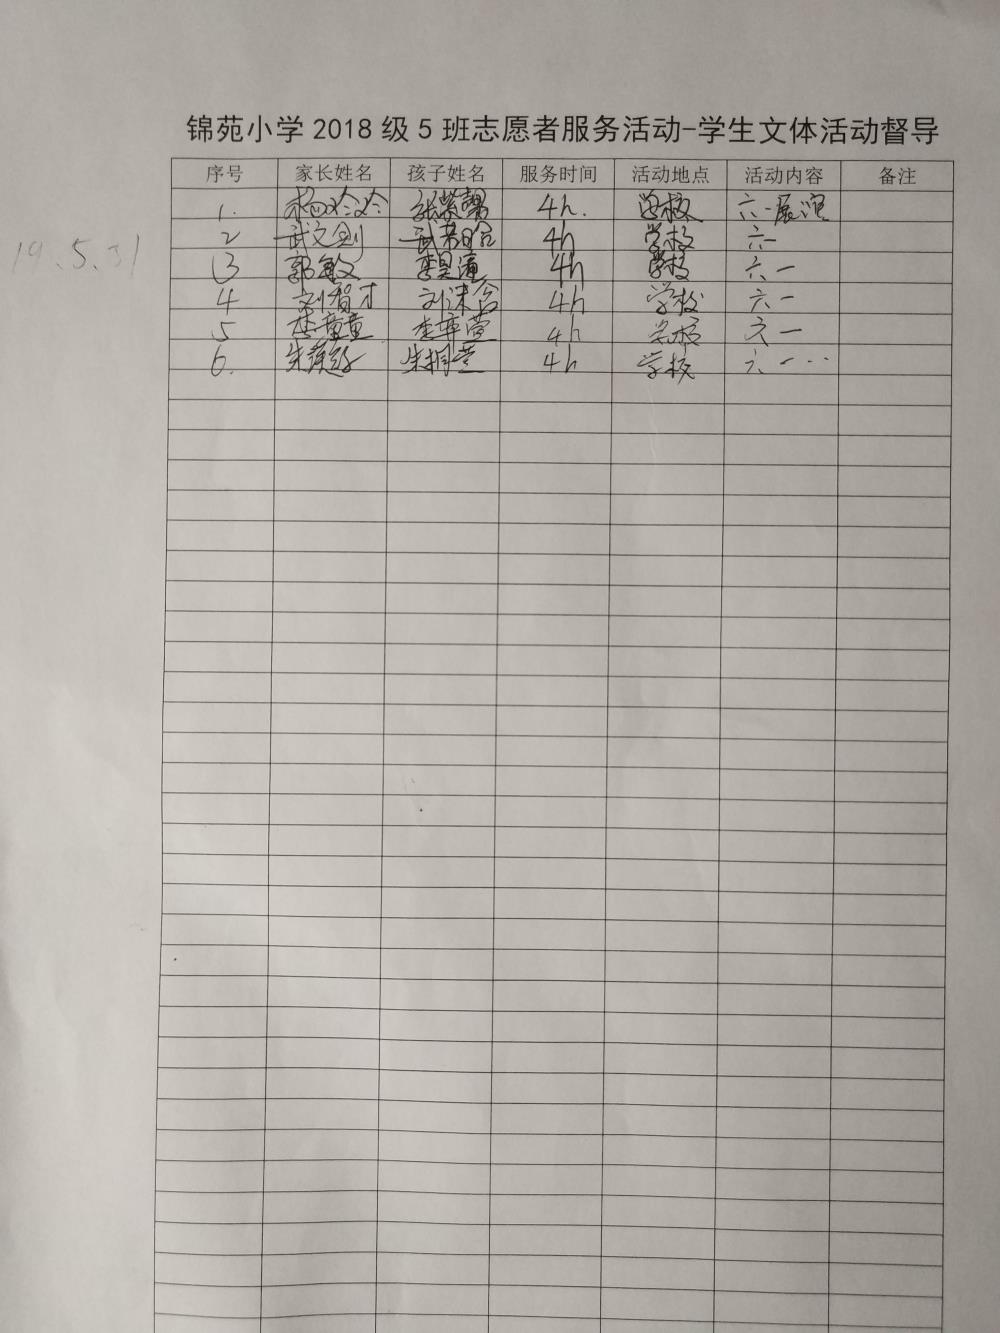 锦苑小学2018级5班志愿者服务活动-学生文体活动督导
序号 家长姓名 孩子姓名 服务时间 活动地点 活动内容 备注
1. 杨玲玲 4h. 学校 六一展演
19.5.31
2 武文剑 4h 学校 六一
3 郭敏 李昊 4h 学校 六一
4 刘智才 刘沫含 4h 学校 六一
5 李童童 李奕萱 4h 学校 六一
6. 朱 朱桐萱 4h 学校 六一